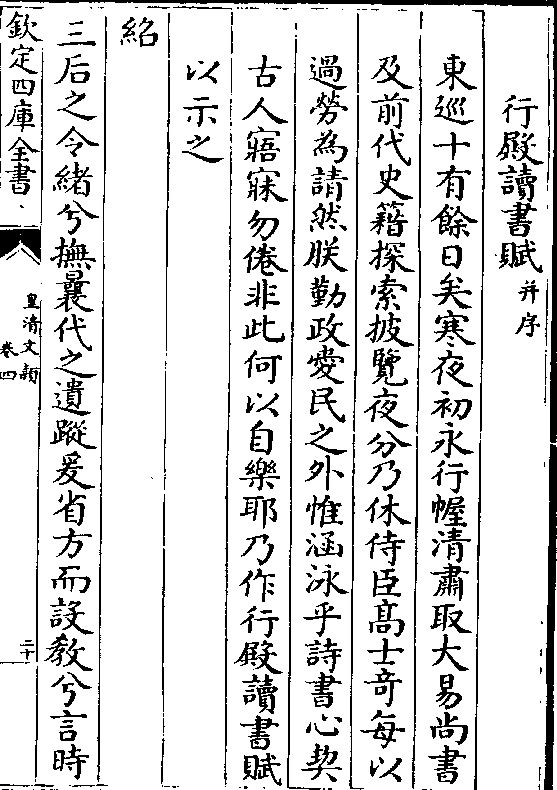 行殿讀書賦并序
東巡十有餘日矣寒夜初永行幄清肅取大易尚書
及前代史籍探索披覽夜分乃休侍臣高士奇每以
過勞為請然朕勤政愛民之外惟涵泳乎詩書心契
古人寤寐勿倦非此何以自樂耶乃作行殿讀書賦
以示之
紹
三后之令緒兮撫曩代之遺蹤爰省方而設教兮言時
欽定四庫全書
皇清文穎
卷四
二十